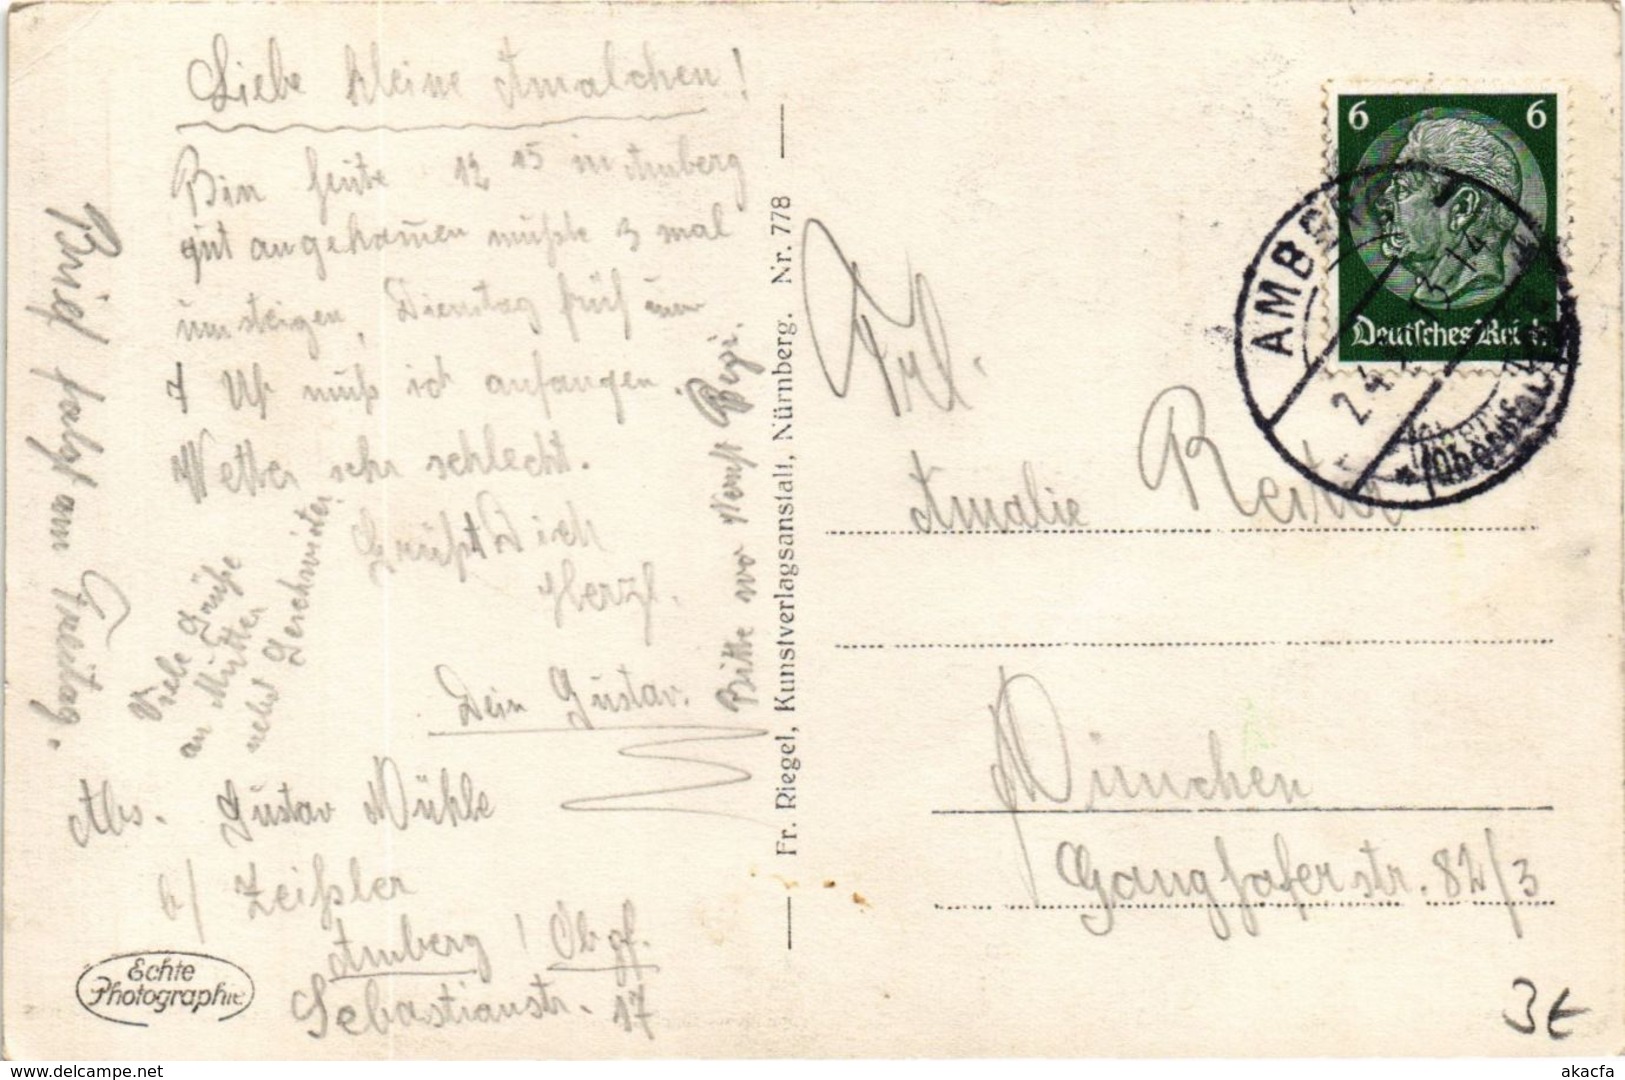 Liebe kleine Amalchen!
Bin heute 12 15 in Amberg
gut angekommen mußte 3 mal
umsteigen, Dienstag früh um
7 Uhr muß ich anfangen.
Wetter sehr schlecht.
Grüßt Dich
Herzl.
Dein Gustav.
Viele Grüße
an Mutter
nebst Geschwister
Brief folgt am Freitag.
Bitte
Abs. Gustav Mühle
b/ Zeißler
Amberg / Obpf.
Sebastianstr. 17
Echte
Photographie
Fr. Riegel, Kunstverlagsanstalt, Nürnberg. Nr. 778
6 6
Deutsches Reich
AMBERG
(Oberpfalz)
Frl.
Amalie Reiter
München
Ganghoferstr. 82/3
3€
www.delcampe.net
akacfa